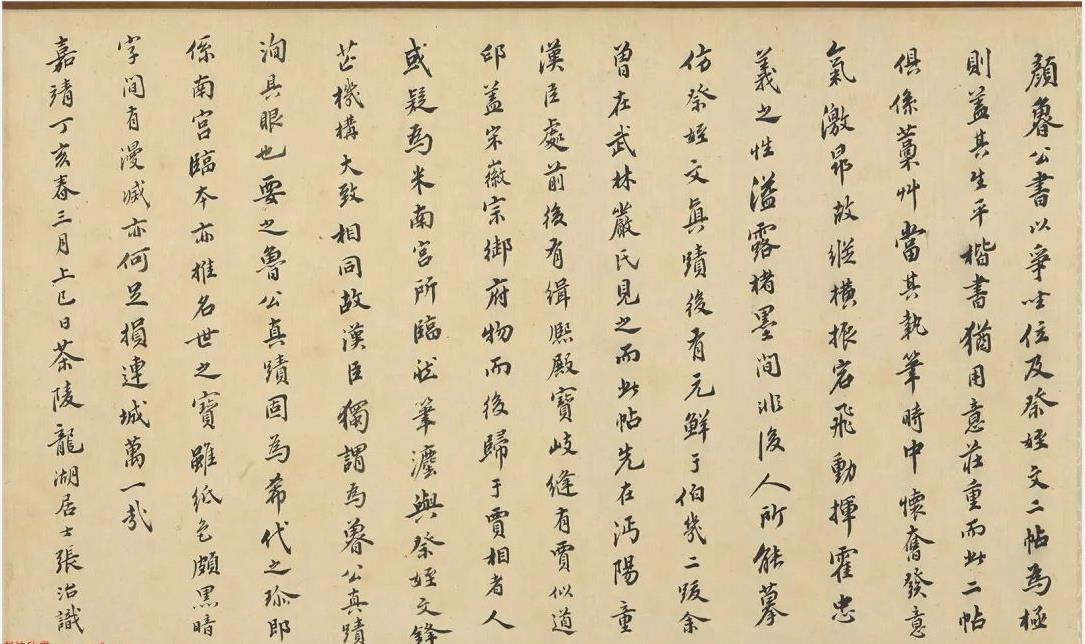 顏魯公書以爭坐位及祭姪文二帖為極
則蓋其生平楷書猶用意莊重而此二帖
俱係藁艸當其執筆時中懷奮發意
氣激昂故縱橫振宕飛動揮霍忠
義之性溢露楮墨間非後人所能摹
仿祭姪文眞蹟後有元鮮于伯幾二跋余
曾在武林嚴氏見之而此帖先在沔陽童
漢臣處前後有緝熙殿寶岐縫有賈似道
印蓋宋徽宗御府物而後歸于賈相者人
或疑為米南宮所臨然筆瀍與祭姪文鋒
芒機構大致相同故漢臣獨謂為魯公真蹟
洵具眼也要之魯公真蹟固為希代之珎即
係南宮臨本亦推名世之寶雖紙色頗黑暗
字間有漫滅亦何足損連城萬一哉
嘉靖丁亥春三月上巳日茶陵龍湖居士張治識